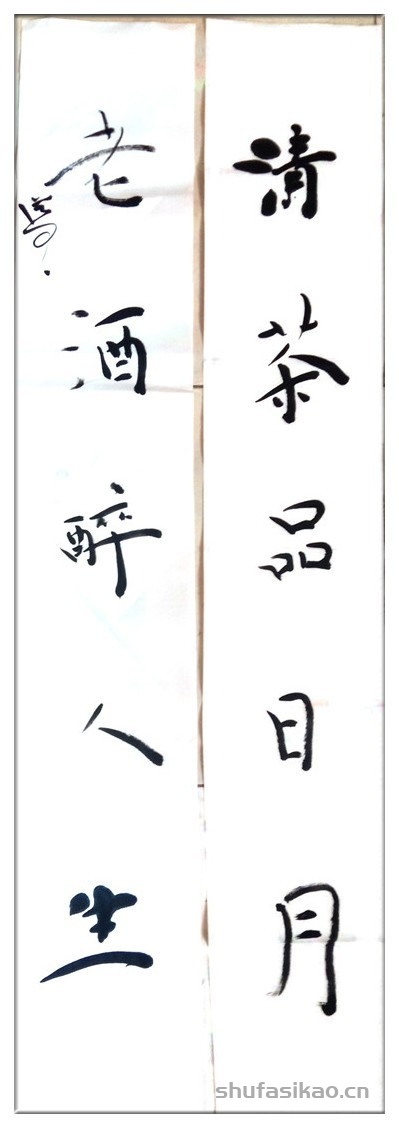 清茶品日月
老酒醉人生
shufasikao.cn